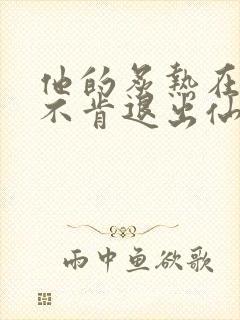 他的炙热在
不肯退出仙
雨中鱼欲歌